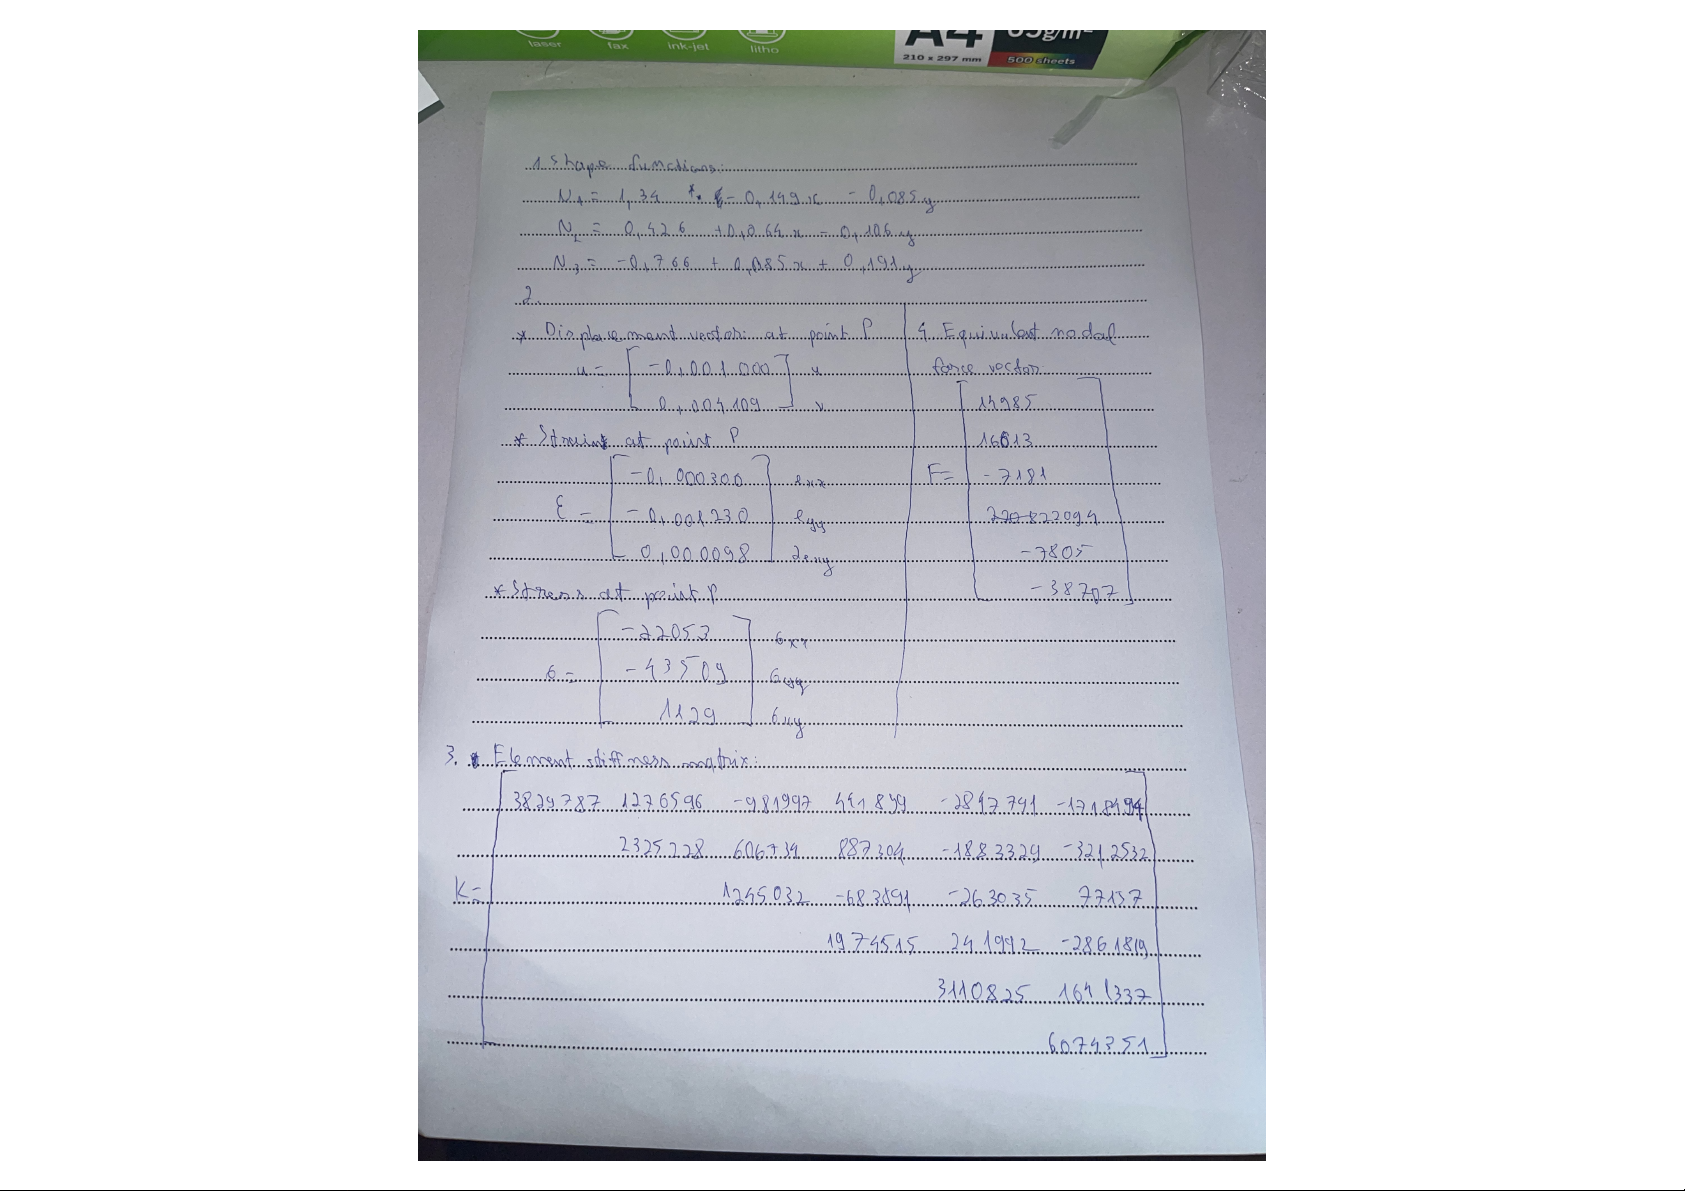 laser fax ink-jet litho
A4
210 x 297 mm
500 sheets
1. Shape functions:
N1 = 1,34 - 0,149x - 0,085y
N2 = 0,426 + 0,064x - 0,106y
N3 = -0,766 + 0,085x + 0,191y
2.
* Displacement vector: at point P
u = [ -0,001000 ] u
[ 0,004109 ] v
* Strain at point P
ε = [ -0,000300 ] exx
[ -0,001230 ] eyy
[ 0,000098 ] 2exy
* Stress at point P
б = [ -22053 ] бxx
[ -43509 ] бyy
[ 1129 ] бxy
4. Equivalent nodal
force vector:
F = [ 14985
16013
-7181
22094
-7805
-38707 ]
3. Element stiffness matrix:
3829787 1276596 -981997 441899 -2847791 -1718494
2325228 606734 887304 -1883329 -3212532
K = 1245032 -683891 -263035 77137
1974515 241992 -2861819
3110825 1641337
6074351